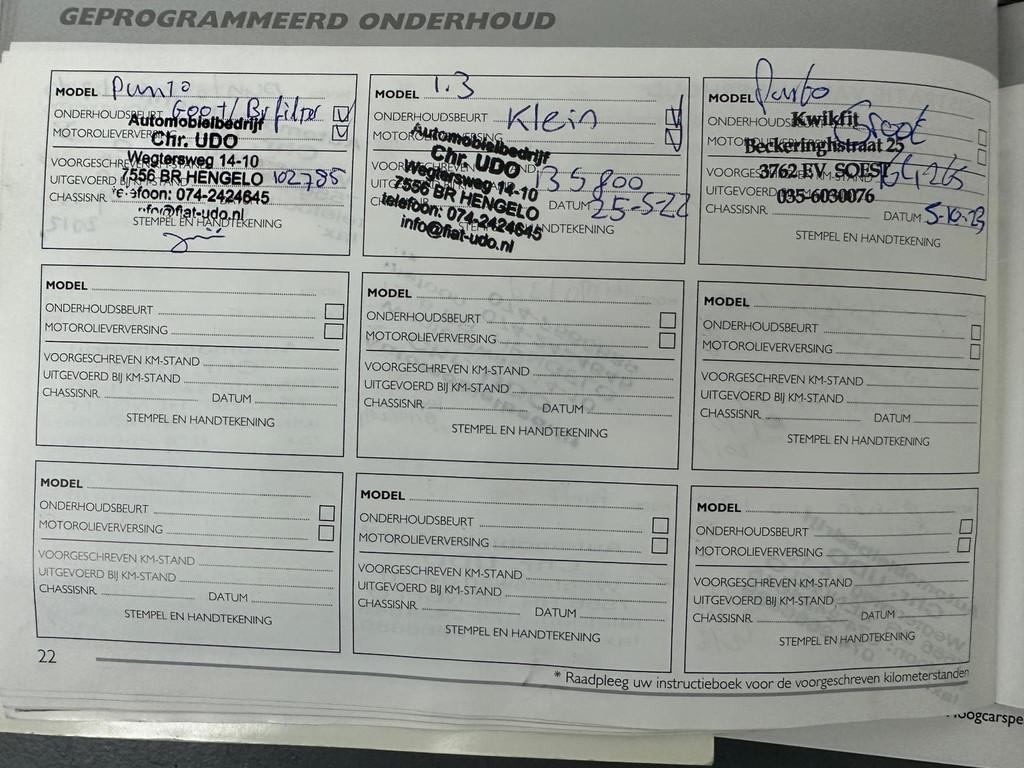 GEPROGRAMMEERD ONDERHOUD
MODEL Punto
ONDERHOUDSBEURT Groot/Brfilter
MOTOROLIEVERVERSING
Automobielbedrijf
Chr. UDO
Wegtersweg 14-10
7556 BR HENGELO
telefoon: 074-2424645
info@fiat-udo.nl
VOORGESCHREVEN KM-STAND
UITGEVOERD BIJ KM-STAND 102785
CHASSISNR.
STEMPEL EN HANDTEKENING
MODEL 1.3
ONDERHOUDSBEURT Klein
MOTOROLIEVERVERSING
Automobielbedrijf
Chr. UDO
Wegtersweg 14-10
7556 BR HENGELO
telefoon: 074-2424645
info@fiat-udo.nl
VOORGESCHREVEN KM-STAND
UITGEVOERD BIJ KM-STAND 135800
CHASSISNR. DATUM 25-5-22
STEMPEL EN HANDTEKENING
MODEL Punto
ONDERHOUDSBEURT Groot
MOTOROLIEVERVERSING
Kwikfit
Beckeringhstraat 25
3762 EV SOEST
035-6030076
VOORGESCHREVEN KM-STAND
UITGEVOERD BIJ KM-STAND
CHASSISNR. DATUM 5-10-23
STEMPEL EN HANDTEKENING
MODEL
ONDERHOUDSBEURT
MOTOROLIEVERVERSING
VOORGESCHREVEN KM-STAND
UITGEVOERD BIJ KM-STAND
CHASSISNR. DATUM
STEMPEL EN HANDTEKENING
MODEL
ONDERHOUDSBEURT
MOTOROLIEVERVERSING
VOORGESCHREVEN KM-STAND
UITGEVOERD BIJ KM-STAND
CHASSISNR. DATUM
STEMPEL EN HANDTEKENING
MODEL
ONDERHOUDSBEURT
MOTOROLIEVERVERSING
VOORGESCHREVEN KM-STAND
UITGEVOERD BIJ KM-STAND
CHASSISNR. DATUM
STEMPEL EN HANDTEKENING
MODEL
ONDERHOUDSBEURT
MOTOROLIEVERVERSING
VOORGESCHREVEN KM-STAND
UITGEVOERD BIJ KM-STAND
CHASSISNR. DATUM
STEMPEL EN HANDTEKENING
MODEL
ONDERHOUDSBEURT
MOTOROLIEVERVERSING
VOORGESCHREVEN KM-STAND
UITGEVOERD BIJ KM-STAND
CHASSISNR. DATUM
STEMPEL EN HANDTEKENING
MODEL
ONDERHOUDSBEURT
MOTOROLIEVERVERSING
VOORGESCHREVEN KM-STAND
UITGEVOERD BIJ KM-STAND
CHASSISNR. DATUM
STEMPEL EN HANDTEKENING
22
* Raadpleeg uw instructieboek voor de voorgeschreven kilometerstanden